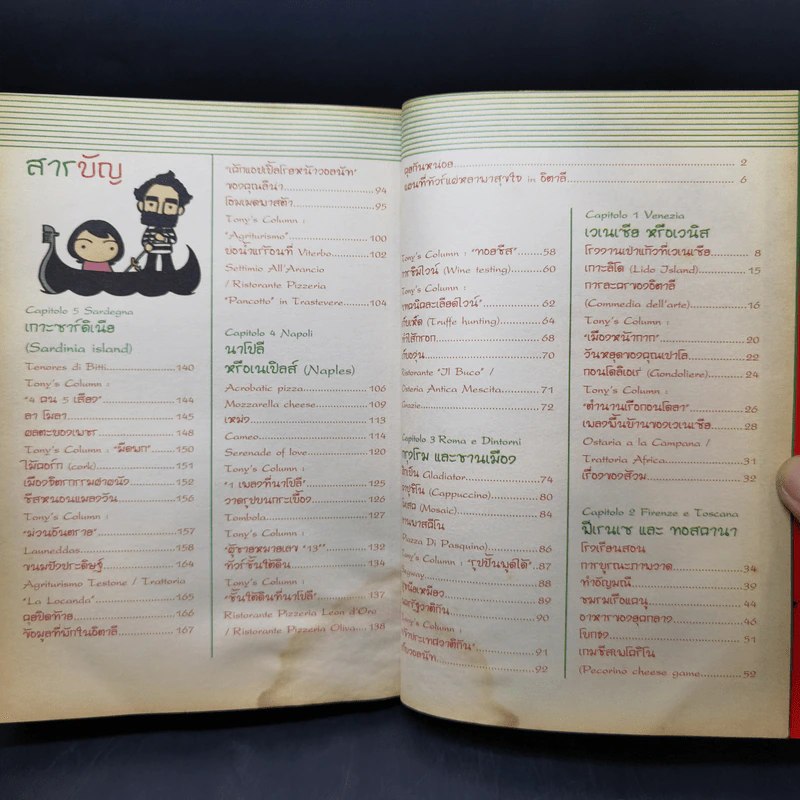 สารบัญ
Capitolo 5 Sardegna
เกาะซาร์ดิเนีย
(Sardinia island)
Tenores di Bitti 140
Tony's Column :
"4 คน 5 เสียง" 144
ลา โมลา 145
148
Tony's Column : "มีดพก" 150
ไม้คอร์ก (cork) 151
152
ชีสหนอนแมลงวัน 156
Tony's Column :
"ม่วนอันตราย" 157
Launeddas 158
ขนมปังประดิษฐ์ 164
Agriturismo Testone / Trattoria
"La Locanda" 165
คุยปิดท้าย 166
ข้อมูลที่พักในอิตาลี 167
ของคุณลีนา 94
โฮมเมดพาสต้า 95
Tony's Column :
"Agriturismo" 100
บ่อน้ำแร่ร้อนที่ Viterbo 102
Settimio All'Arancio
/ Ristorante Pizzeria
"Pancotto" in Trastevere 104
Capitolo 4 Napoli
นาโปลี
หรือเนเปิลส์ (Naples)
Acrobatic pizza 106
Mozzarella cheese 109
เหม่ง 113
Cameo 114
Serenade of love 120
Tony's Column :
"1 เพลงที่นาโปลี" 125
วาดรูปบนกระเบื้อง 126
Tombola 127
Tony's Column :
"ผู้ชายหมายเลข "13"" 132
ทัวร์ชั้นใต้ดิน 134
Tony's Column :
"ชั้นใต้ดินที่นาโปลี" 137
Ristorante Pizzeria Leon d'Oro
/ Ristorante Pizzeria Oliva 138
คุยกันหน่อย 2
แผนที่ทัวร์แต่หลาพาสุขใจ in อิตาลี 6
Tony's Column : "ทอสซีส" 58
(Wine testing) 60
Tony's Column :
62
(Truffe hunting) 64
68
70
Ristorante "Il Buco" /
Osteria Antica Mescita 71
Grazie 72
Capitolo 3 Roma e Dintorni
กรุงโรม และชานเมือง
Gladiator 74
(Cappuccino) 80
(Mosaic) 84
(Piazza Di Pasquino) 86
Tony's Column : "รูปปั้นพูดได้" 87
88
89
90
Tony's Column :
91
92
Capitolo 1 Venezia
เวเนเซีย หรือเวนิส
โรงงานเป่าแก้วที่เวเนเซีย 8
เกาะลิโด (Lido Island) 15
การละครของอิตาลี
(Commedia dell'arte) 16
Tony's Column :
"เมืองหน้ากาก" 20
วันหยุดของคุณเปาโล 22
กอนโดลิเอเร่ (Gondoliere) 24
Tony's Column :
"ตำนานเรือกอนโดลา" 26
เพลงพื้นบ้านของเวเนเซีย 28
Ostaria a la Campana /
Trattoria Africa 31
เรื่องของส้วม 32
Capitolo 2 Firenze e Toscana
ฟีเรนเซ และ ทอสคานา
โรงเรียนสอน
การบูรณะภาพวาด 34
ทำอัญมณี 39
ชมรมเรือแคนู 44
อาหารของยุคกลาง 46
โบกชา 51
เกมชีสเปโคริโน
(Pecorino cheese game 52